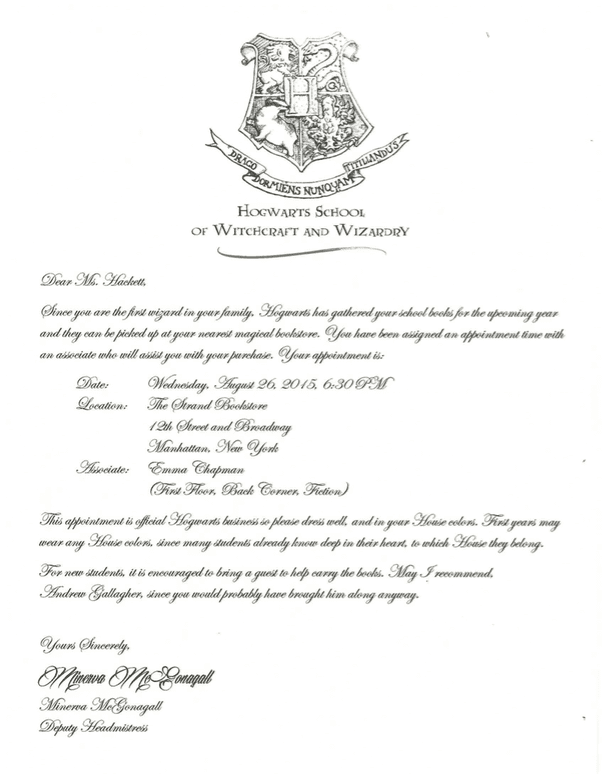 H
DRACO
DORMIENS NUNQUAM
TITILLANDUS
HOGWARTS SCHOOL
OF WITCHCRAFT AND WIZARDRY
Dear Ms. Hackett,
Since you are the first wizard in your family, Hogwarts has gathered your school books for the upcoming year
and they can be picked up at your nearest magical bookstore. You have been assigned an appointment time with
an associate who will assist you with your purchase. Your appointment is:
Date: Wednesday, August 26, 2015, 6:30 PM
Location: The Strand Bookstore
12th Street and Broadway
Manhattan, New York
Associate: Emma Chapman
(First Floor, Back Corner, Fiction)
This appointment is official Hogwarts business so please dress well, and in your House colors. First years may
wear any House colors, since many students already know deep in their heart, to which House they belong.
For new students, it is encouraged to bring a guest to help carry the books. May I recommend,
Andrew Gallagher, since you would probably have brought him along anyway.
Yours Sincerely,
Minerva McGonagall
Minerva McGonagall
Deputy Headmistress